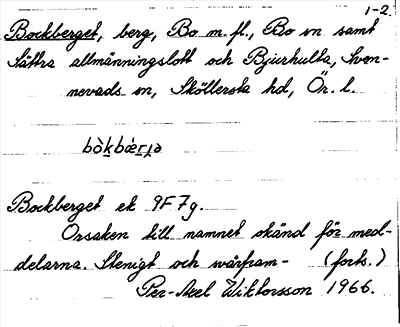 1-2.
Bockberget, berg, Bo m. fl., Bo sn samt
Sättra allmänningslott och Bjurhulta, Sven-
nevads sn, Sköllersta hd, Ör. l.
Bockberget ek 9F7g.
Orsaken till namnet okänd för med-
delarna. Stenigt och svårfram- (forts.)
Per-Axel Wiktorsson 1966.